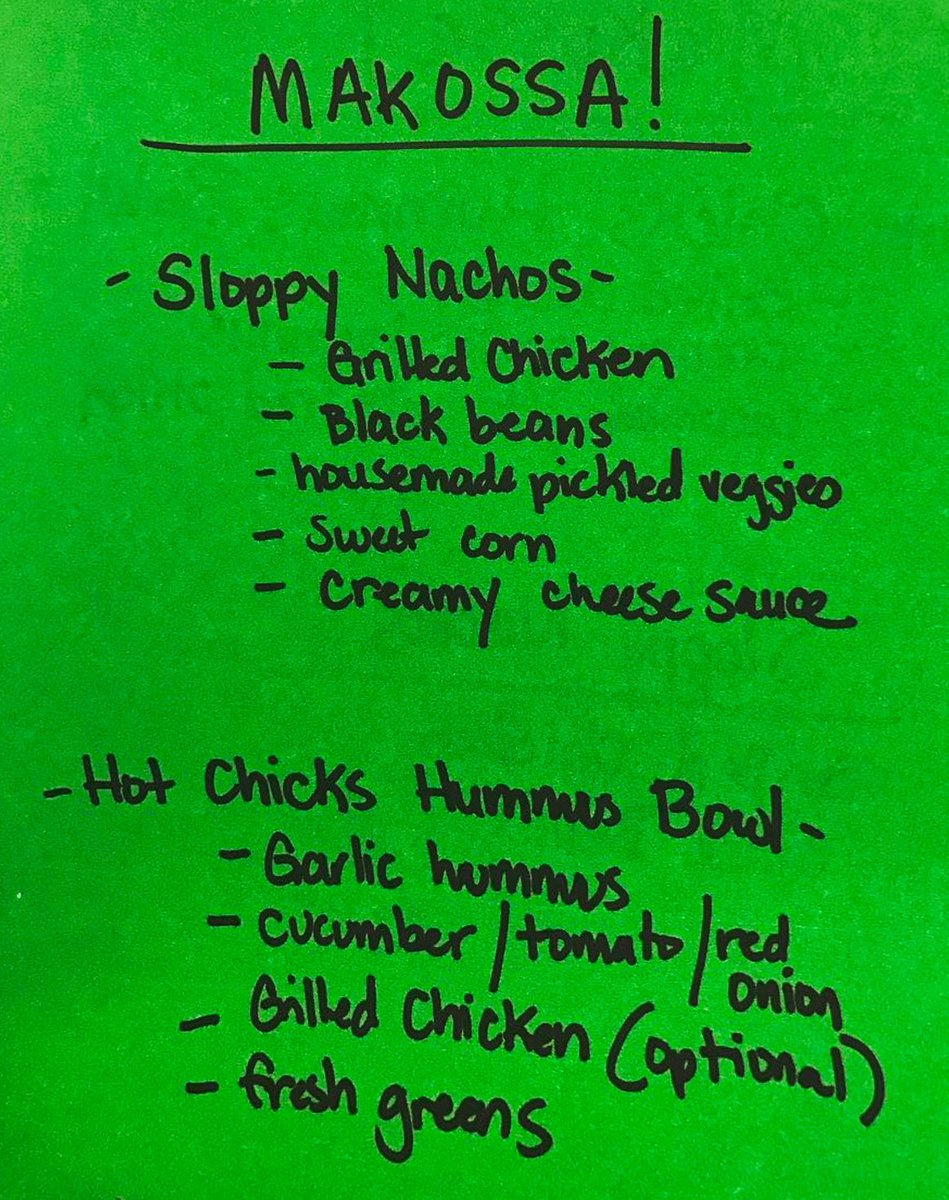 MAKOSSA!
- Sloppy Nachos -
- Grilled Chicken
- Black beans
- housemade pickled veggies
- sweet corn
- creamy cheese sauce
- Hot Chicks Hummus Bowl -
- Garlic hummus
- cucumber/tomato/red
onion
- Grilled Chicken (optional)
- fresh greens